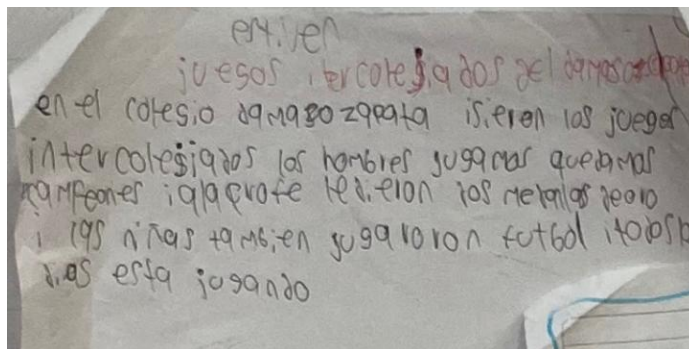 estiven
juegos itercolegiados del damaso zapata
en el colesio damaso zapata isieron los juegos
intercolesiados los hombres jugamos quedamos
campeones i a la profe le dieron dos medallas de oro
i las niñas tambien jugaroron futbol i todos los
dias esta jugando